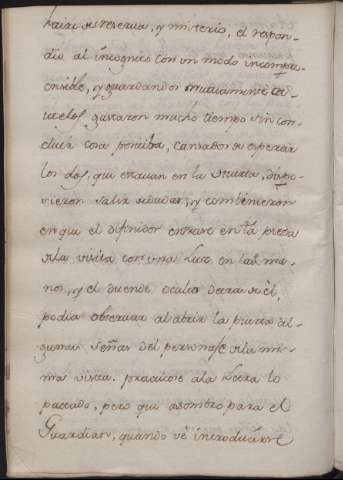 haiai de reserva, y misterio, el respon-
dio al incognito con un modo incompre-
ensible, y guardandos mutuamente ca-
utelas gastaron mucho tiempo sin con-
cluir cosa positiba, cansados de esperar
los dos, que estavan en la visita, dispo-
nieron salir de dudas, y combinieron
en que el Definidor entrase en la pieza
de la visita con una Luz en las ma-
nos, y el duende oculto detras de èl,
podia observar al abrir la puerta al-
gunas señas del personaje de la mi-
ma visita. practicose a la Letra lo
pactado, pero que asombro para el
Guardian, quando vè introducirse